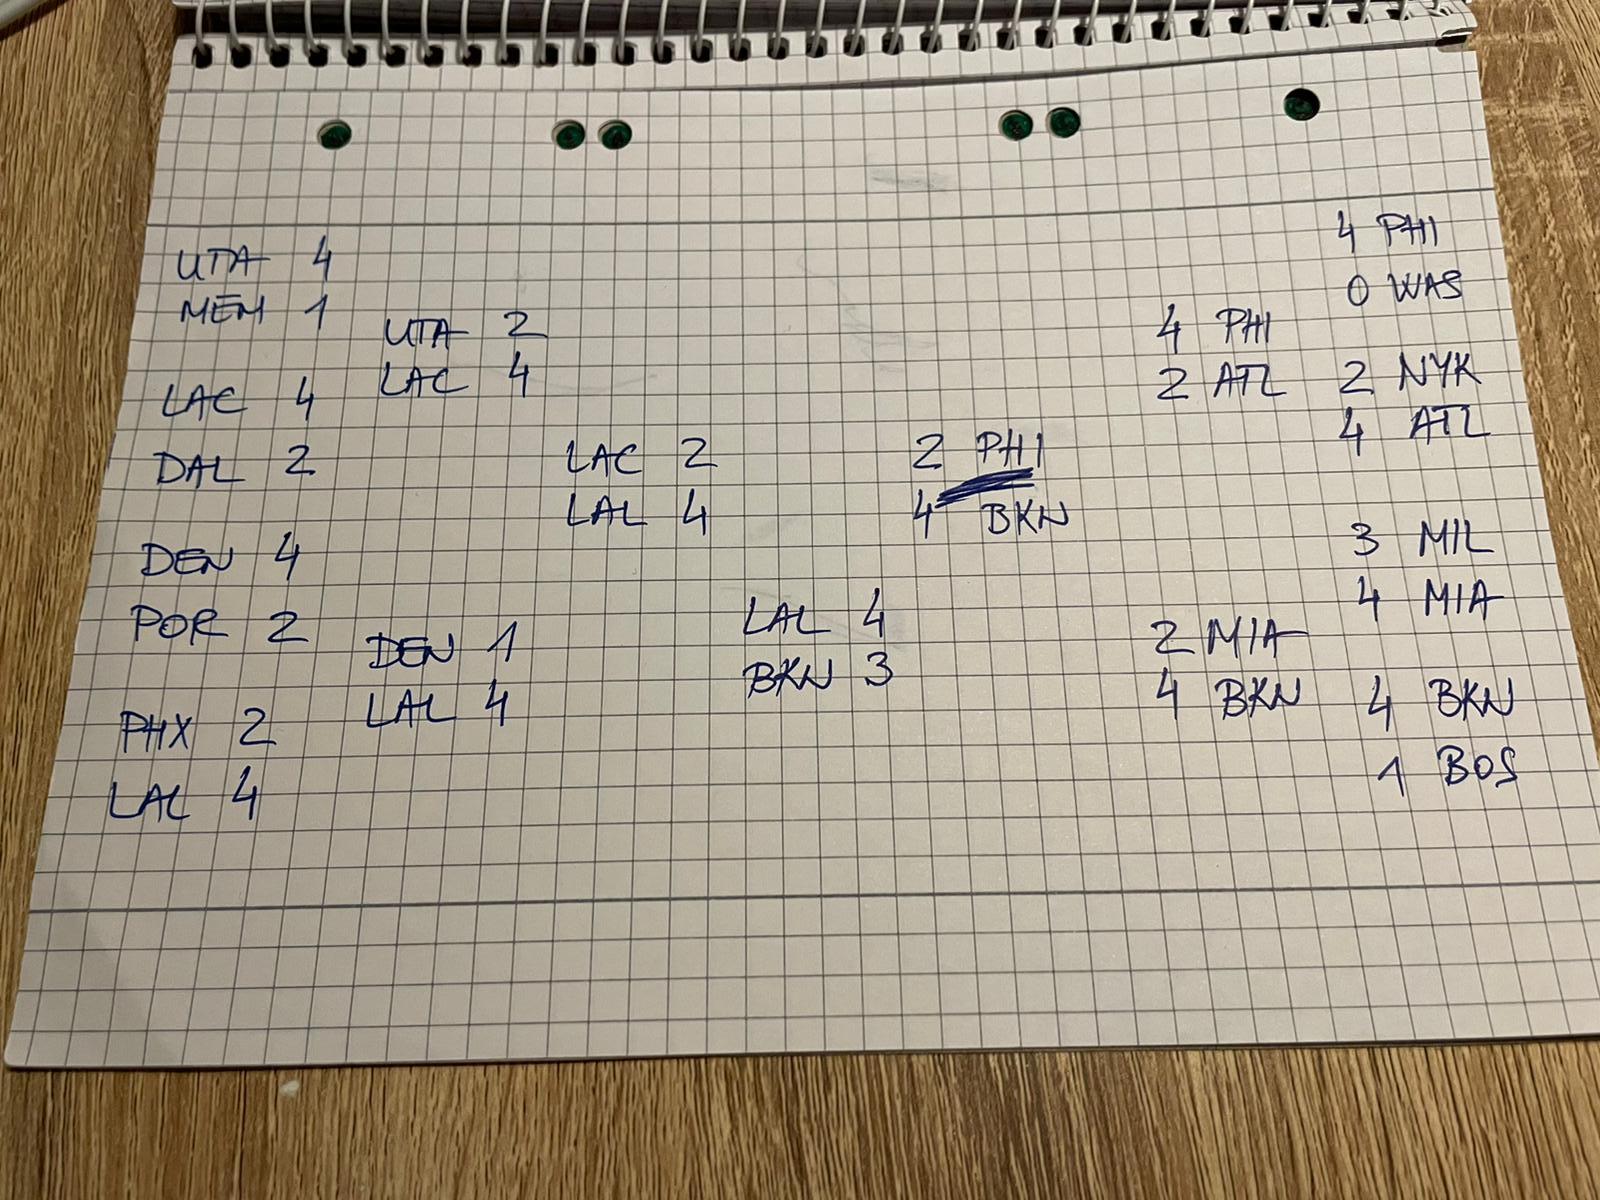 UTA 4
MEM 1
LAC 4
DAL 2
DEN 4
POR 2
PHX 2
LAL 4
UTA 2
LAC 4
DEN 1
LAL 4
LAC 2
LAL 4
LAL 4
BKN 3
2 PHI
4 BKN
4 PHI
2 ATL
2 MIA
4 BKN
4 PHI
0 WAS
2 NYK
4 ATL
3 MIL
4 MIA
4 BKN
1 BOS